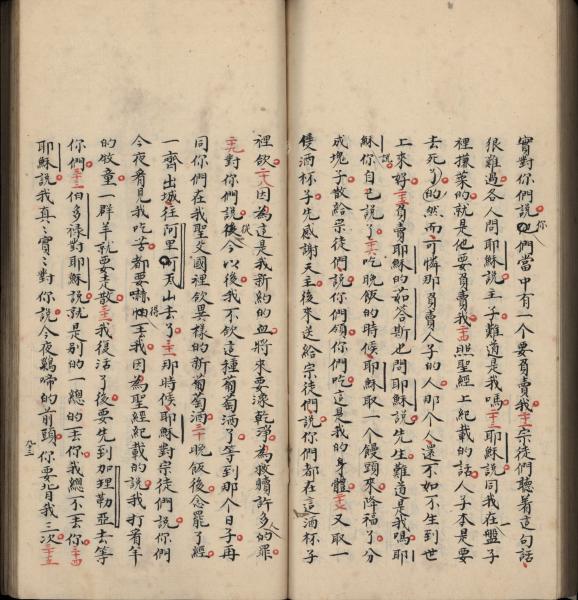 實對你們說你們當中有一個要負賣我二十二宗徒們聽着這句話
很難過各人問耶穌說主子難道是我嗎二十三耶穌說同我在盤子
裡攥菜的就是他要負賣我二十四照聖經上紀載的話人子本是要
去死(的)然而可憐那負賣人子的人那個人還不如不生到世
上來好二十五負賣耶穌的茹答斯也問耶穌說先生難道是我嗎耶
穌說你自己說了二十六吃晚飯的時候耶穌取一個饅頭來降福了分
成塊子散給宗徒們說你們領你們吃這是我的身體二十七又取一
隻酒杯子先感謝天主後來送給宗徒們說你們都在這酒杯子
裡飲二十八因為這是我新約的血將來要乾淨為救贖許多人的罪
二十九對你們說從今以後我不飲這種葡萄酒了等到那個日子再
同你們在我聖父國裡飲異樣的新葡萄酒三十晚飯後念罷了經
一齊出城往阿里瓦山去了三十一那時候耶穌對宗徒們說你們
今夜看見我吃苦都要嚇得丟我因為聖經紀載的說我打看羊
的牧童一群羊就要走散三十二我復活了後要先到加理勒亞去等
你們三十三伯多祿對耶穌說就是別的一總的丟你我總不丟你三十四
耶穌說我真〻實〻對你說今夜鷄啼的前頭你要背我三次三十五